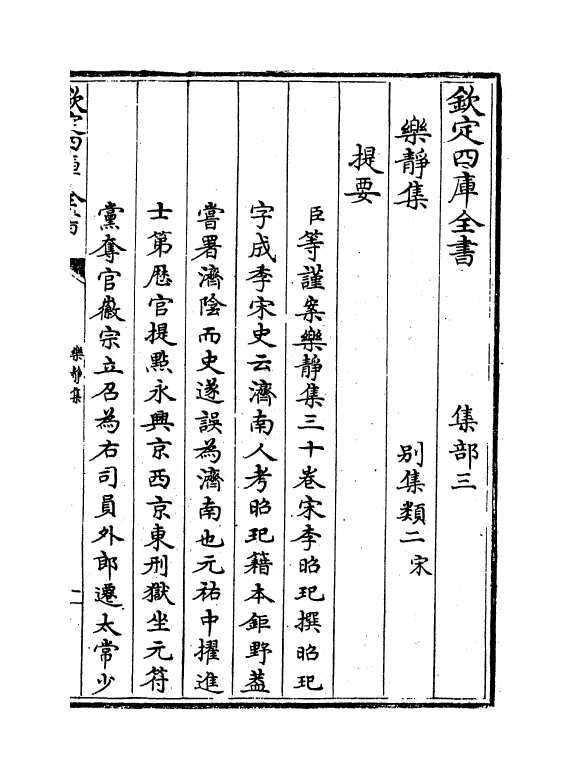 欽定四庫全書　集部三
樂靜集　別集類二宋
提要
臣等謹案樂靜集三十卷宋李昭玘撰昭玘
字成季宋史云濟南人考昭玘籍本鉅野葢
嘗署濟陰而史遂誤為濟南也元祐中擢進
士第歴官提㸃永興京西京東刑獄坐元符
黨奪官徽宗立召為右司員外郎遷太常少
欽定四庫全書
樂靜集